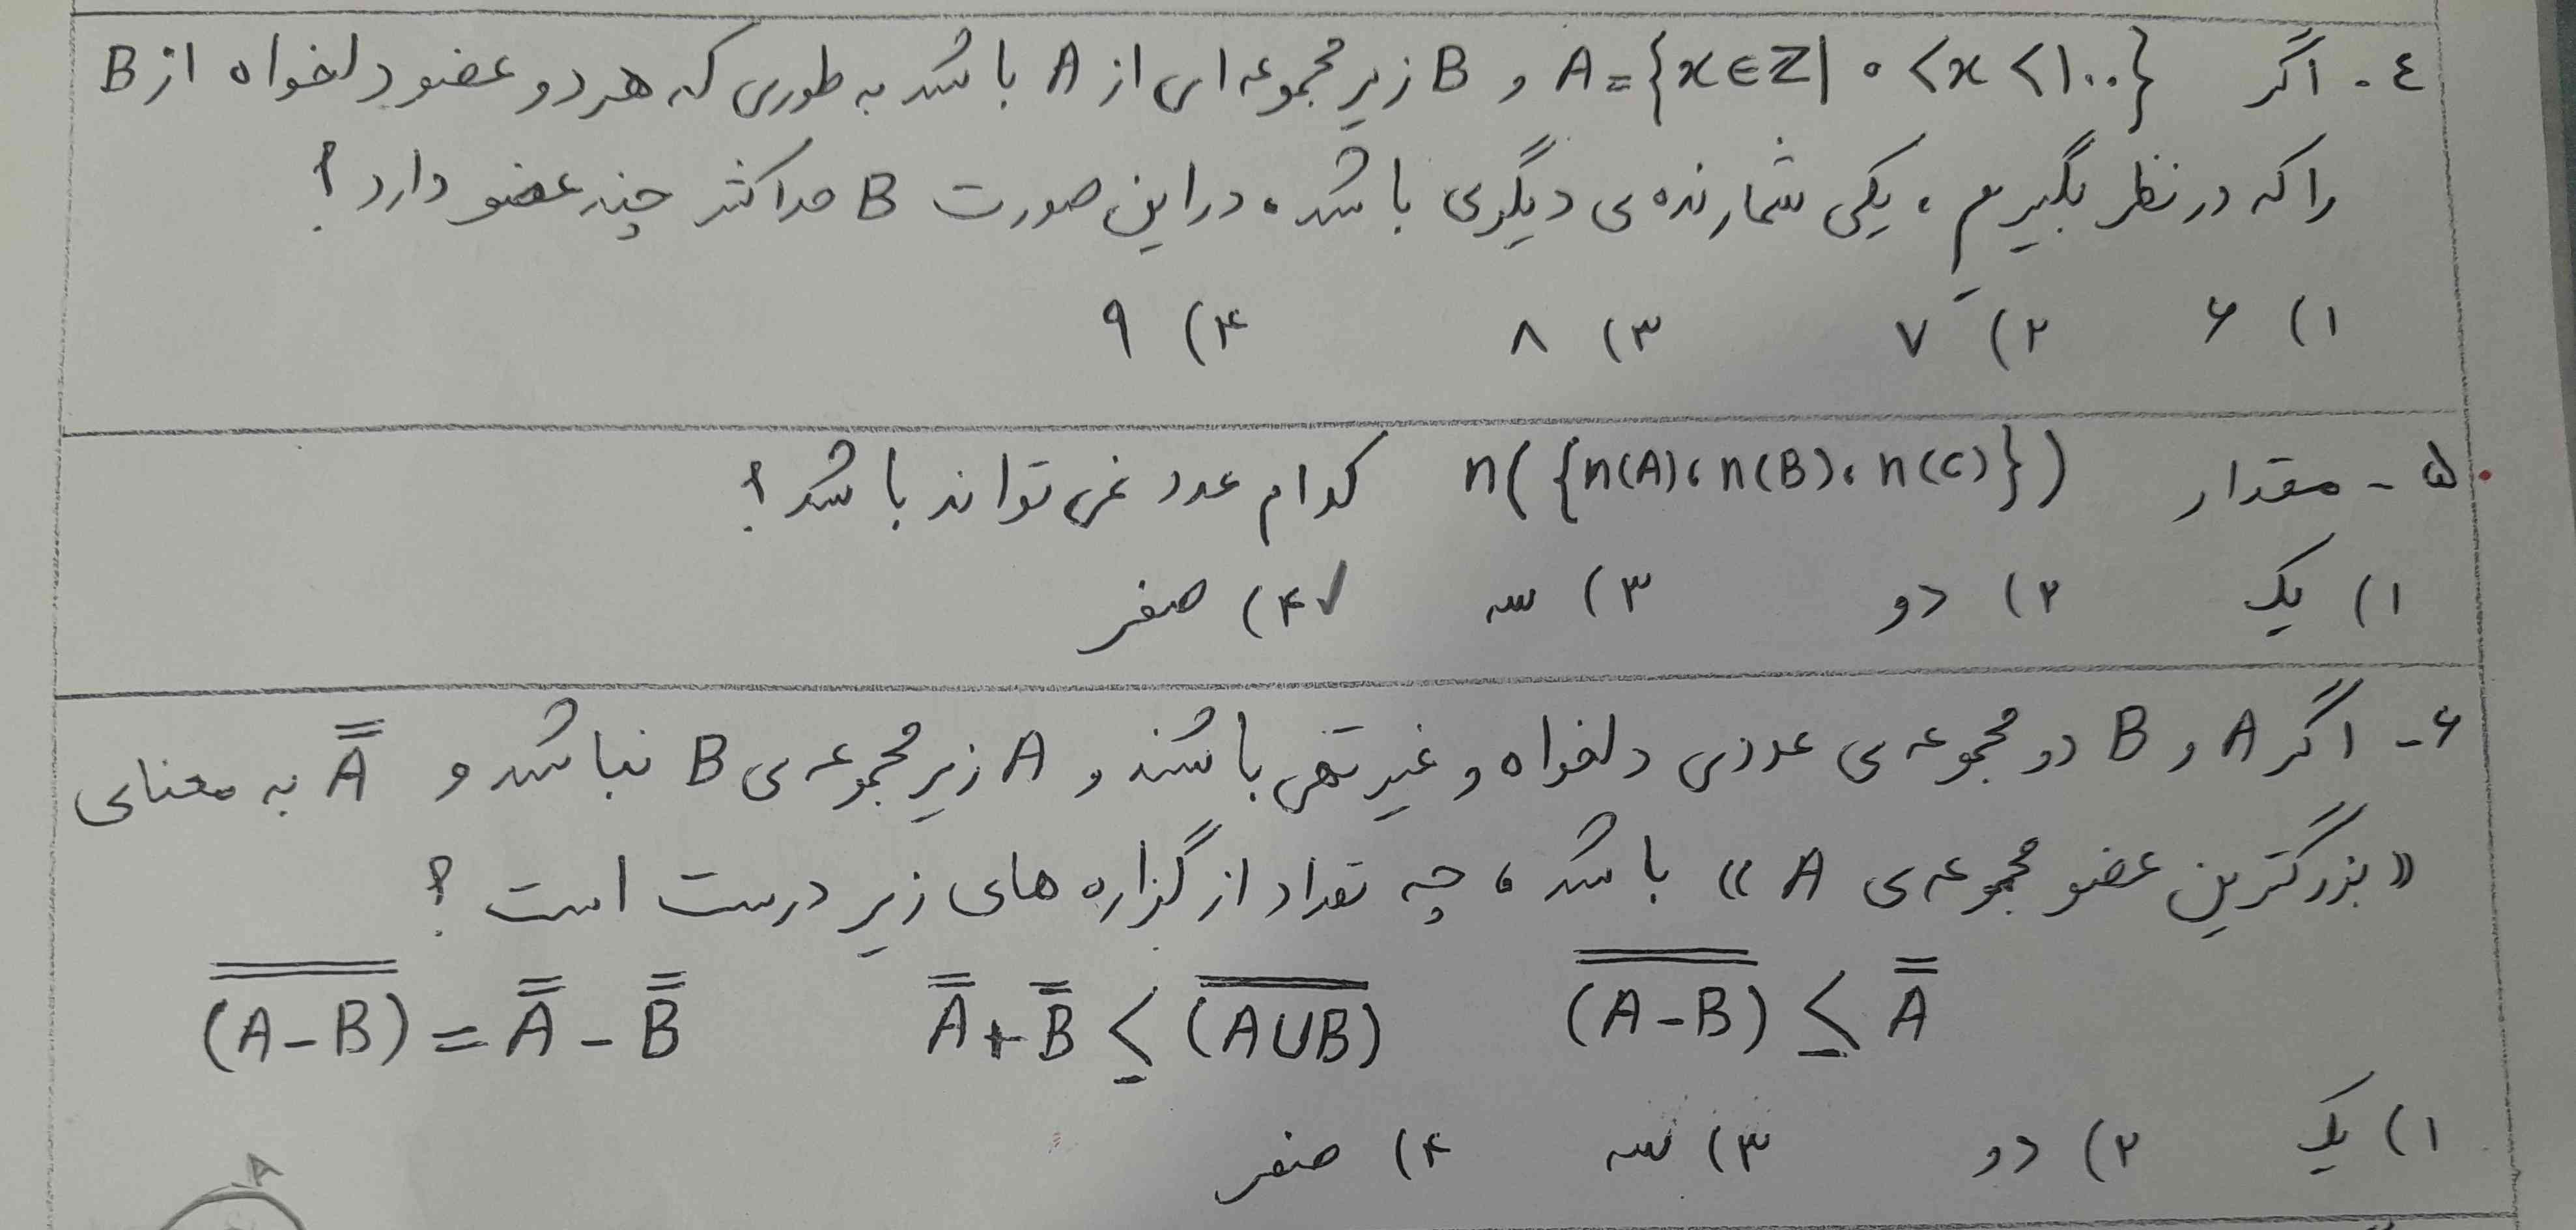 ٤- اگر A = {x ∈ ℤ | ۰ < x < ۱۰۰} و B زیر مجموعه ای از A باشد به طوری که هر دو عضو دلخواه از B
را که در نظر بگیریم ، یکی شمارنده ی دیگری باشد ، در این صورت B حداکثر چند عضو دارد ؟
۱) ۶ ۲) ۷ ۳) ۸ ۴) ۹
۵- مقدار n({n(A)، n(B)، n(C)}) کدام عدد نمی تواند باشد ؟
۱) یک ۲) دو ۳) سه ✓۴) صفر
۶- اگر A و B دو مجموعه ی عددی دلخواه و غیر تهی باشند و A زیر مجموعه ی B نباشد و A̿ به معنای
«بزرگترین عضو مجموعه ی A» باشد ، چه تعداد از گزاره های زیر درست است ؟
(A-B)̿ ≤ A̿ A̿ + B̿ ≤ (A∪B)̿ (A-B)̿ = A̿ - B̿
۱) یک ۲) دو ۳) سه ۴) صفر
A